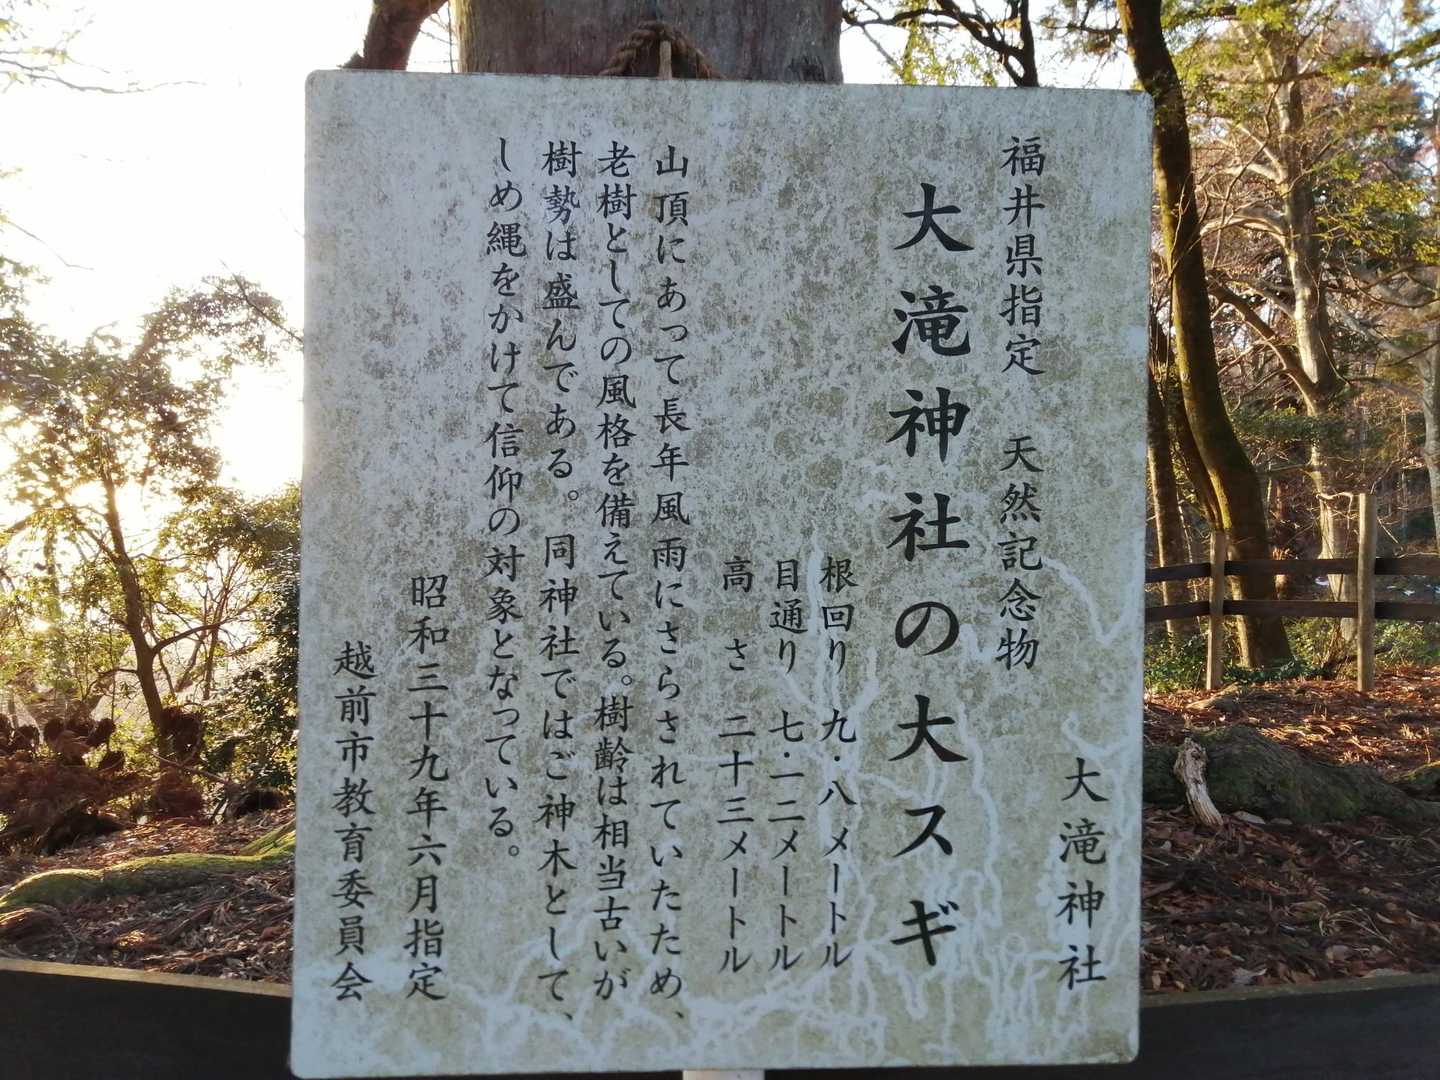 大滝神社
福井県指定 天然記念物
大滝神社の大スギ
根回り 九・八メートル
目通り 七・一二メートル
高さ 二十三メートル
山頂にあって長年風雨にさらされていたため、
老樹としての風格を備えている。樹齢は相当古いが
樹勢は盛んである。同神社ではご神木として、
しめ縄をかけて信仰の対象となっている。
昭和三十九年六月指定
越前市教育委員会